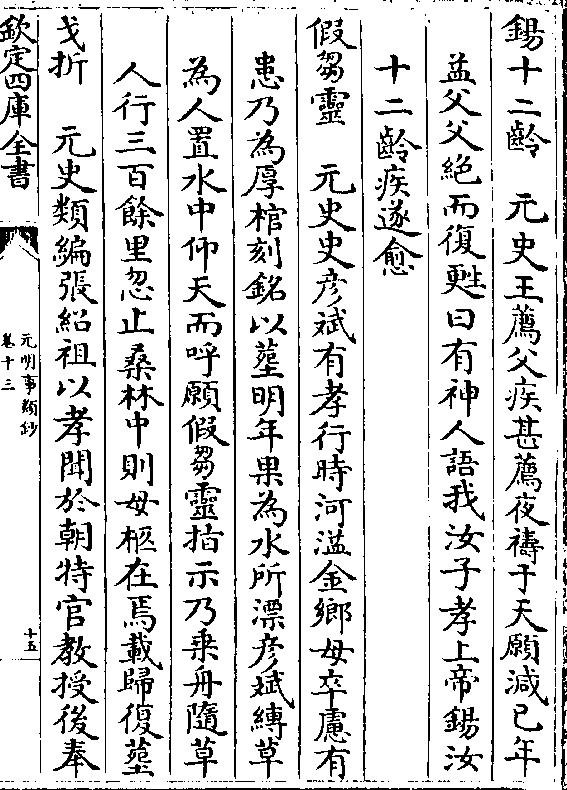 錫十二齡　元史王薦父疾甚薦夜禱于天願減己年
益父父絶而復甦曰有神人語我汝子孝上帝錫汝
十二齡疾遂愈
假芻靈　元史史彦斌有孝行時河溢金鄉母卒慮有
患乃為厚棺刻銘以塟明年果為水所漂彦斌縛草
為人置水中仰天而呼願假芻靈指示乃乗舟隨草
人行三百餘里忽止桑林中則母柩在焉載歸復塟
戈折　元史類編張紹祖以孝聞於朝特官教授後奉
欽定四庫全書
元明事類鈔
卷十三
十五